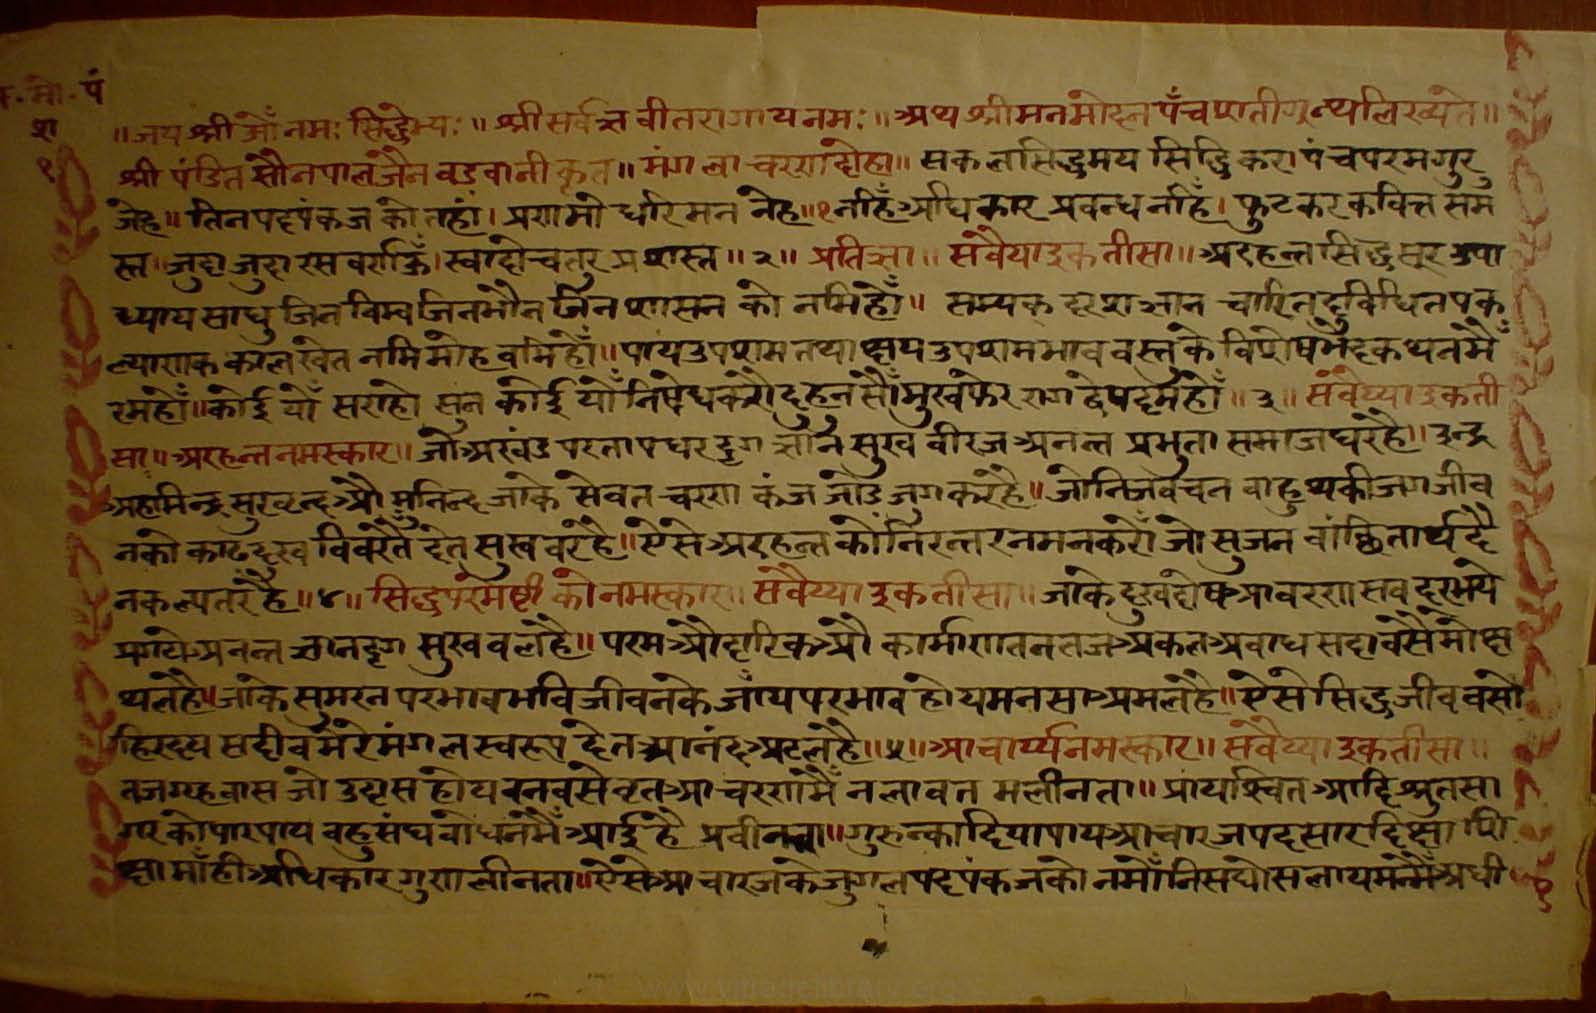 म. मो. पं
श
१
॥ जय श्री ओँ नमः सिद्धेभ्यः ॥ श्री सर्वज्ञ वीतरागाय नमः ॥ अथ श्री मनमोहन पँचशती ग्रन्थ लिख्यते ॥
श्री पंडित सौनपाल जैन वडवानी कृत ॥ मंगलाचरण दोहा ॥ सकल सिद्धमय सिद्धि करा पंच परम गुरु
जेह ॥ तिन पद पंकज को तहां । प्रणमो धरि मन नेह ॥ १ नहिँ अधिकार प्रवन्ध नहिँ । फुटकर कवित्त सम
स्त । जुदा जुदा रस वर्णऊँ । स्वादो चतुर प्रशस्त ॥ २ ॥ प्रतिज्ञा ॥ सवैया इकतीसा ॥ अरहन्त सिद्ध सूर उपा
ध्याय साधु जिन विम्व जिन भौन जिन शासन को नमि हौँ ॥ सम्यक दरश ज्ञान चारित दुविधि तप क
ल्याणक काल खेत नमि मोह वमि हौँ ॥ पाय उपशम तथा क्षय उपशम भाव वस्तु के विशेष भेद कथन मेँ
रम हौँ ॥ कोई योँ सराहो सुन कोई योँ निषेध करो दुहुन सौँ मुख फेर राग द्वेष दमि हौँ ॥ ३ ॥ सवैय्या इकती
सा ॥ अरहन्त नमस्कार ॥ जो अखंड परताप धर दृग ज्ञान सुख वीरज अनन्त प्रभुता समाज घर है ॥ इन्द्र
अहमिन्द्र सुरवृन्द औ मुनिन्द जाके सेवत चरण कंज जोड जुग कर है ॥ जो निज वचन वाहु थकी जग जीव
नको काढ दुख विवर तै देत सुख वर है ॥ ऐसे अरहन्त को निरन्तर नमन करोँ जो सुजन वांछितार्थ दै
न कल्पतर है ॥ ४ ॥ सिद्ध परमेष्टी को नमस्कार ॥ सवैय्या इकतीसा ॥ जाके दुखदोष आवरण सव दूर भये
प्रगटे अनन्त ज्ञान दृग सुख वल है ॥ परम औदारिक औ कार्माण तन तज अकल अवाध सदा वसै मोक्ष
थल है ॥ जाके सुमरन परभाव भवि जीवन के जाय परभाव होय मनसा अमल है ॥ ऐसे सिद्ध जीव वसो
हिरदय सदीव मेरे मंगल स्वरूप देत आनंद अटल है ॥ ५ ॥ आचार्य्य नमस्कार ॥ सवैय्या इकतीसा ॥
तज ग्रह वास जो उदास होय वन वसे वृत आचरण मेँ न लावत मलीनता ॥ प्रायश्चित आदि श्रुत सा
गर को पार पाय वहु संघ वोधन मेँ आई है प्रवीनता ॥ गुरुन्का दिया पाय आचारज पद सार दिक्षा शि
क्षा माँही अधिकार गुण लीनता ॥ ऐसे आचारज के जुगल पद पंकज को नमोँ निस द्योस लाय मन मेँ अधी
१